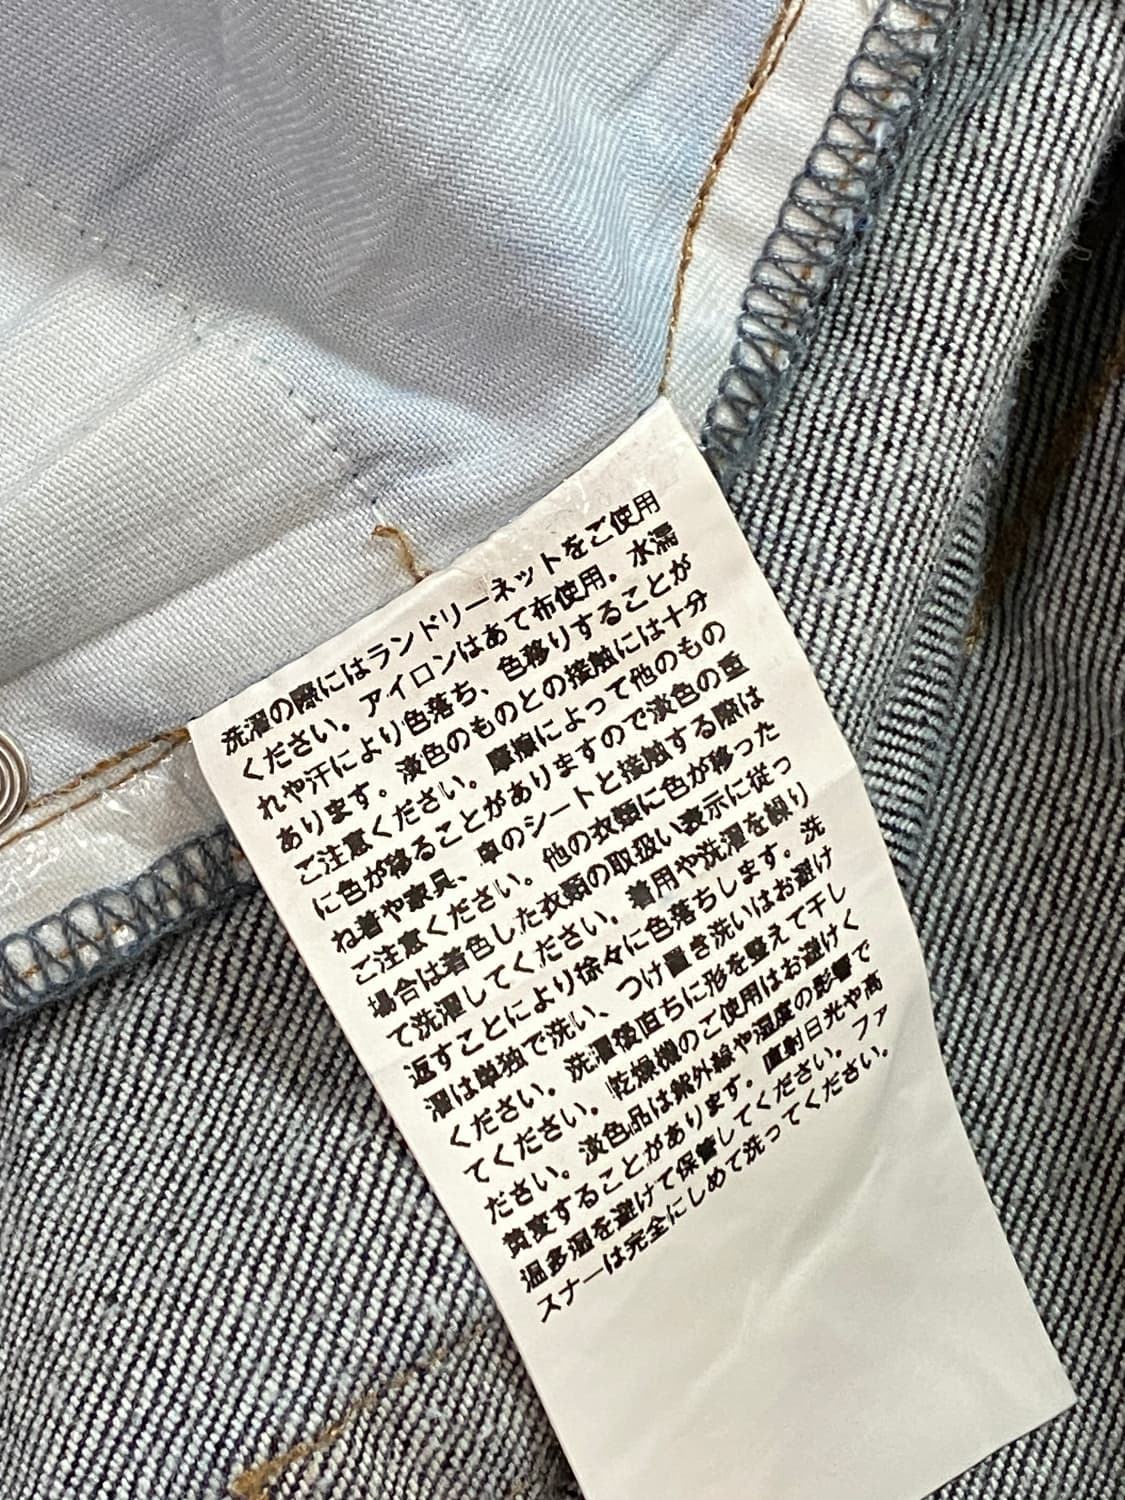 洗濯の際にはランドリーネットをご使用
ください。アイロンはあて布使用。水濡
れや汗により色落ち、色移りすることが
あります。淡色のものとの接触には十分
ご注意ください。摩擦によって他のもの
に色が移ることがありますので淡色の重
ね着や家具、車のシートと接触する際は
ご注意ください。他の衣類に色が移った
場合は着色した衣類の取扱い表示に従っ
て洗濯してください。着用や洗濯を繰り
返すことにより徐々に色落ちします。洗
濯は単独で洗い、つけ置き洗いはお避け
ください。洗濯後直ちに形を整えて干し
てください。乾燥機のご使用はお避けく
ださい。淡色品は紫外線や湿度の影響で
黄変することがあります。直射日光や高
温多湿を避けて保管してください。ファ
スナーは完全にしめて洗ってください。